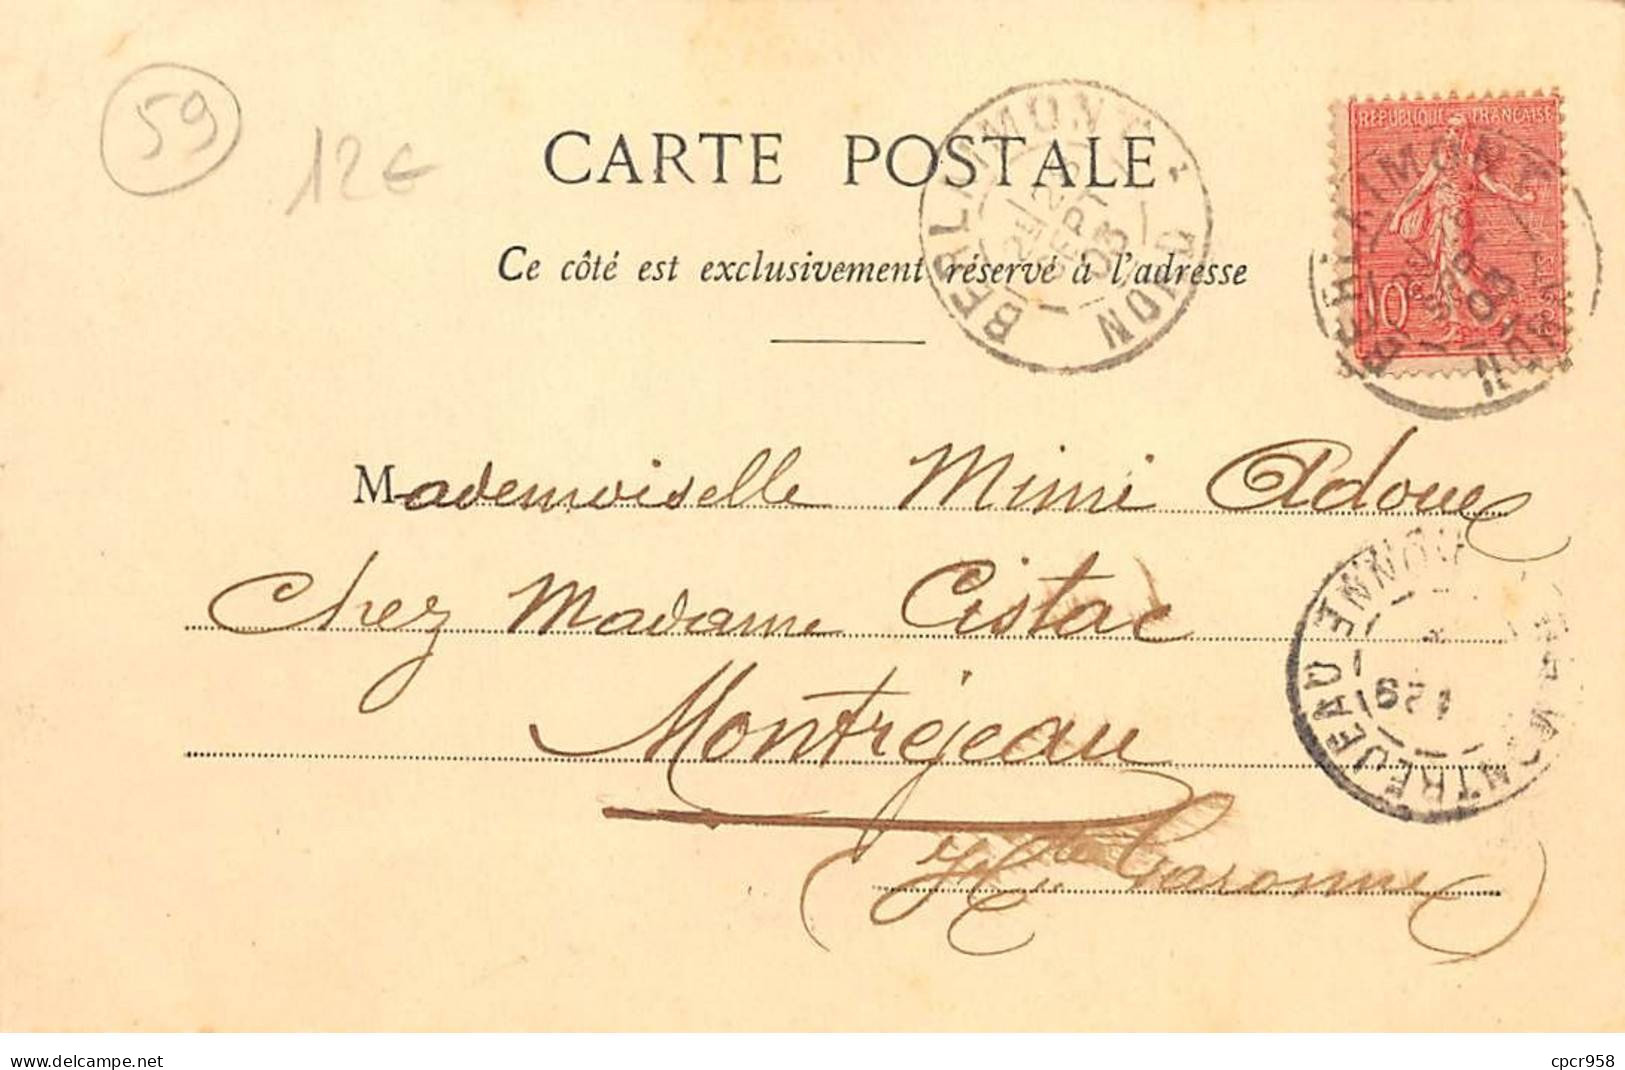 59
12€
CARTE POSTALE
Ce côté est exclusivement réservé à l'adresse
BERLAIMONT NORD
2E
SEPT
05
REPUBLIQUE FRANÇAISE
10
BERLAIMONT NORD
05
Mademoiselle Mimi Adoue
Chez Madame Cistac
Montréjeau
Hte Garonne
MONTREJEAU
delcampe.net
cpcr958